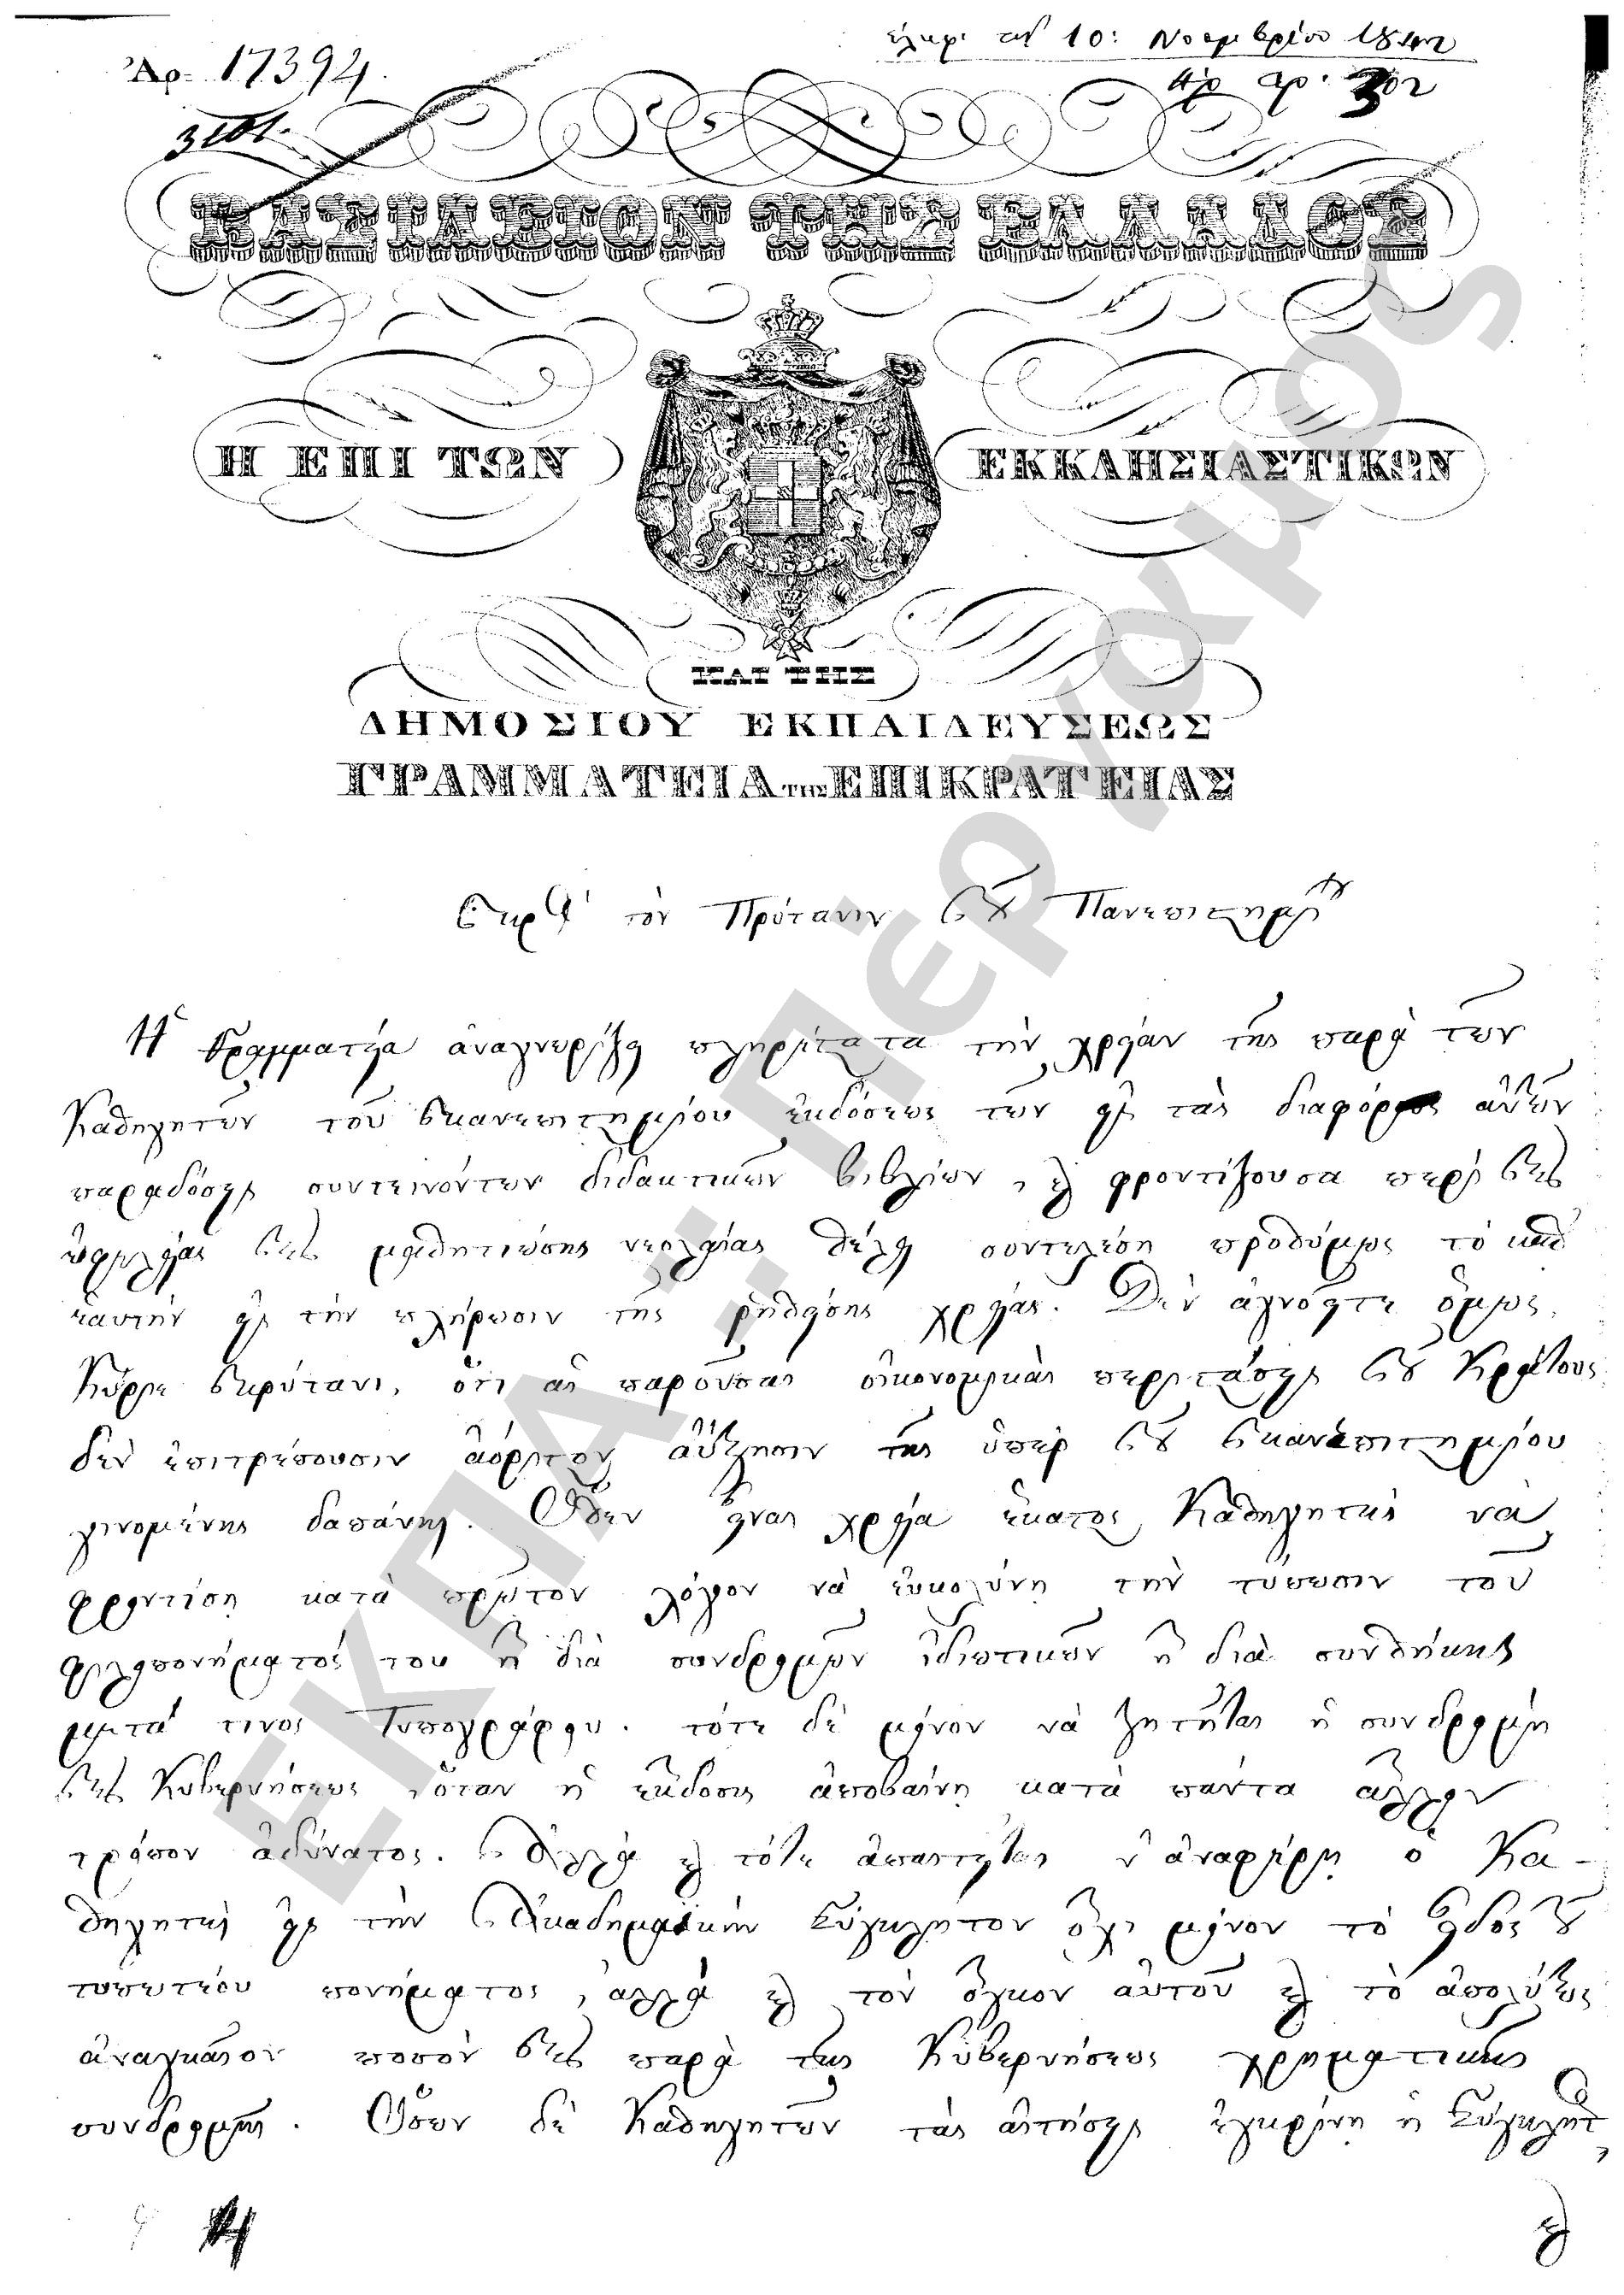 Ἀρ. 17394.
ἐλήφ. τῇ 10: Νοεμβρίου 1842
ἀρ. 302
3101.
ΒΑΣΙΛΕΙΟΝ ΤΗΣ ΕΛΛΑΔΟΣ
Η ΕΠΙ ΤΩΝ ΕΚΚΛΗΣΙΑΣΤΙΚΩΝ
ΚΑΙ ΤΗΣ
ΔΗΜΟΣΙΟΥ ΕΚΠΑΙΔΕΥΣΕΩΣ
ΓΡΑΜΜΑΤΕΙΑ ΤΗΣ ΕΠΙΚΡΑΤΕΙΑΣ
Πρὸς τὸν Πρύτανιν τοῦ Πανεπιστημίου
Ἡ Γραμματεία ἀναγνωρίζει πληρέστατα τὴν χρείαν τῆς παρὰ τῶν
Καθηγητῶν τοῦ Πανεπιστημίου ἐκδόσεως τῶν εἰς τὰς διαφόρους αὐτῶν
παραδόσεις συντεινόντων διδακτικῶν βιβλίων, καὶ φροντίζουσα περὶ τῆς
ὠφελείας τῆς μαθητιώσης νεολαίας θέλει συντελέσῃ προθύμως τὸ καθ'
ἑαυτὴν εἰς τὴν πλήρωσιν τῆς ῥηθείσης χρείας. Δὲν ἀγνοεῖτε ὅμως,
Κύριε Πρύτανι, ὅτι αἱ παροῦσαι οἰκονομικαὶ περιστάσεις τοῦ Κράτους
δὲν ἐπιτρέπουσιν ἀόριστον αὔξησιν τῆς ὑπὲρ τοῦ Πανεπιστημίου
γινομένης δαπάνης. Ὅθεν εἶναι χρεία ἕκαστος Καθηγητὴς νὰ
φροντίσῃ κατὰ πρῶτον λόγον νὰ εὐκολύνῃ τὴν τύπωσιν τοῦ
φιλοπονήματός του ἢ διὰ συνδρομῶν ἰδιωτικῶν ἢ διὰ συνθήκης
μετά τινος Τυπογράφου. τότε δὲ μόνον νὰ ζητῆται ἡ συνδρομὴ
τῆς Κυβερνήσεως, ὅταν ἡ ἔκδοσις ἀποβαίνῃ κατὰ πάντα ἄλλον
τρόπον ἀδύνατος. Ἀλλὰ καὶ τότε ἀπαιτεῖται ν' ἀναφέρῃ ὁ Κα-
θηγητὴς εἰς τὴν Ἀκαδημαϊκὴν Σύγκλητον ὄχι μόνον τὸ εἶδος τοῦ
τυπωτέου πονήματος, ἀλλὰ καὶ τὸν ὄγκον αὐτοῦ καὶ τὸ ἀπολύτως
ἀναγκαῖον ποσὸν τῆς παρὰ τῆς Κυβερνήσεως χρηματικῆς
συνδρομῆς. Ὅσων δὲ Καθηγητῶν τὰς αἰτήσεις ἐγκρίνῃ ἡ Σύγκλητος,
καὶ
ΕΚΠΑ :: Πέργαμος